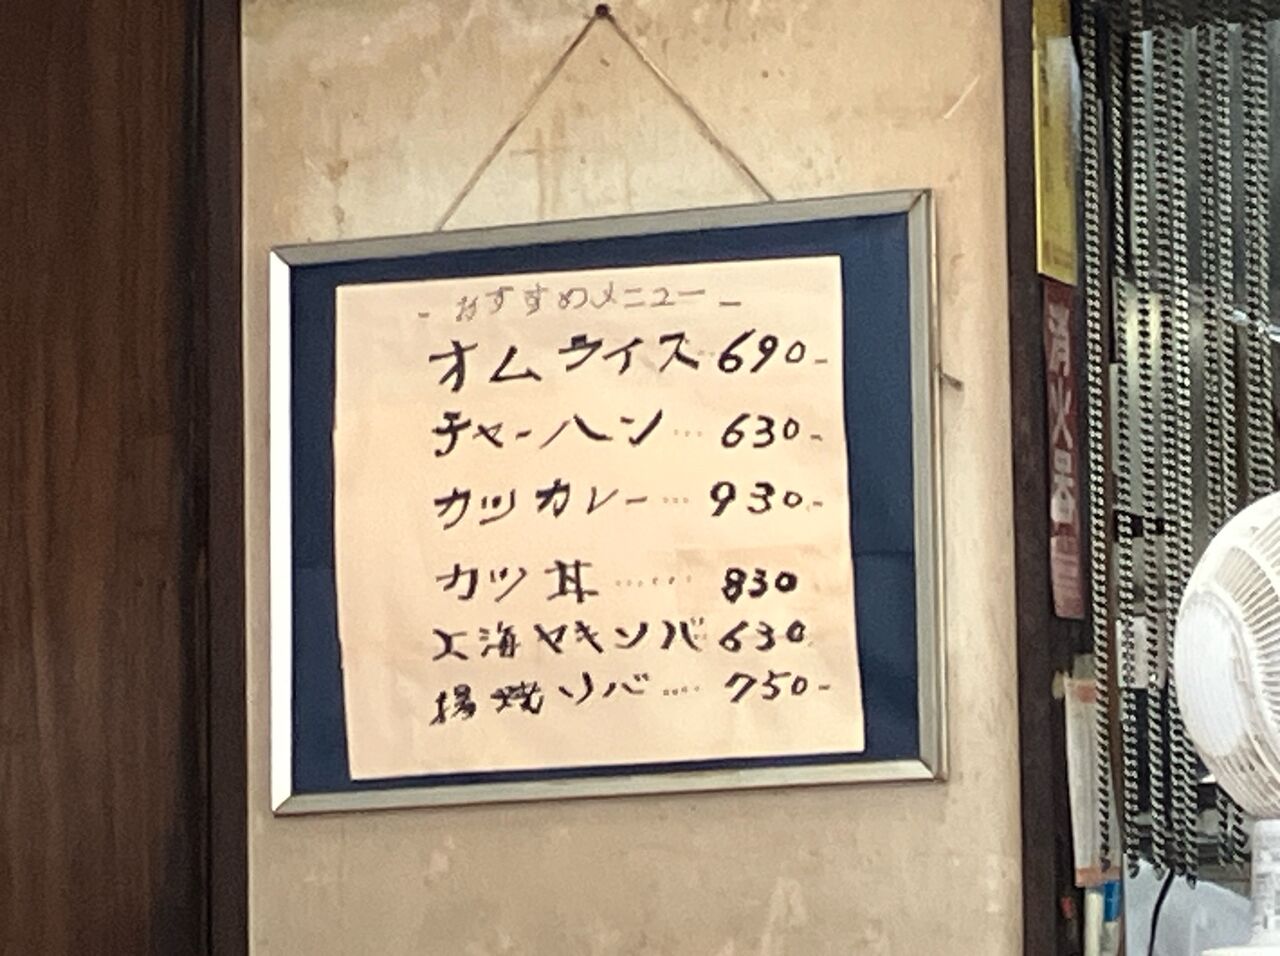 - おすすめメニュー -
オムライス…690-
チャーハン…630-
カツカレー…930-
カツ丼……830
上海ヤキソバ…630
揚焼ソバ…750-
消火器